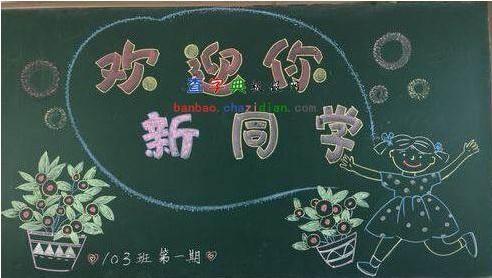 欢迎你
查字典
banbao.chazidian.com
新同学
103班第一期